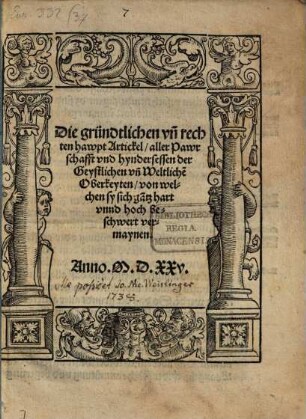 7
Die gründtlichen vñ rech
ten hawpt Artickel / aller Pawr
schafft vnd hyndersessen der
Geystlichen vñ Weltlichẽ
Oberkeyten / von wel-
chen sy sich gãtz hart
vnnd hoch be-
schwert ver-
maynen.
BIBLIOTHECA
REGIA
MONACENSIS
Anno. M. D. XXv.